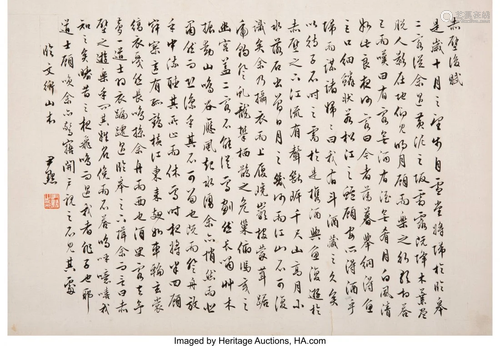 赤壁后賦
是歲十月之望步自雪堂將歸於臨皋
二客從余過黃泥之坂霜露既降木葉盡
脫人影在地仰見明月顧而樂之行歌相答
已而歎曰有客無酒有酒無肴月白風清
如此良夜何客曰今者薄暮舉網得魚
巨口細鱗狀如松江之鱸顧安所得酒乎
歸而謀諸婦婦曰我有斗酒藏之久矣
以待子不時之需於是攜酒與魚復遊於
赤壁之下江流有聲斷岸千尺山高月小
水落石出曾日月之幾何而江山不可復
識矣余乃攝衣而上履巉巖披蒙茸踞
虎豹登虬龍攀棲鶻之危巢俯馮夷之
幽宮蓋二客不能從焉劃然長嘯草木
震動山鳴谷應風起水涌余亦悄然而悲
肅然而恐凜乎其不可留也反而登舟放
乎中流聽其所止而休焉時夜將半四顧
寂寥適有孤鶴橫江東來翅如車輪玄裳
縞衣戛然長鳴掠余舟而西也須臾客去
夢道士羽衣蹁躚過臨皋之下揖余而言曰赤
壁之遊樂乎問其姓名俯而不答嗚呼噫嘻我
知之矣疇昔之夜飛鳴而過我者非子也耶
道士顧笑余亦驚寤開戶視之不見其處
臨文衡山本 尹默
Imaged by Heritage Auctions, HA.com